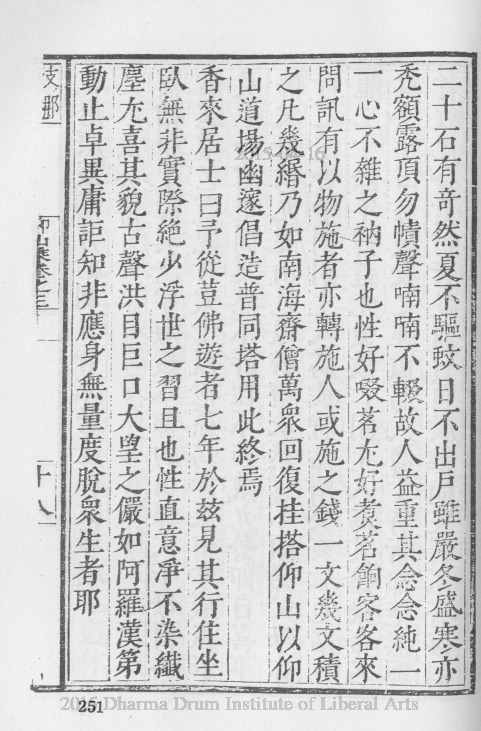 二十石有奇然夏不驅蚊日不出戶雖嚴冬盛寒亦
禿額露頂勿幘聲喃喃不輟故人益重其念念純一
一心不雜之衲子也性好啜茗尤好煑茗餉客客來
問訊有以物施者亦轉施人或施之錢一文幾文積
之凡幾緡乃如南海齋僧萬衆回復挂搭仰山以仰
山道場幽邃倡造普同塔用此終焉
香來居士曰予從荳佛遊者七年於茲見其行住坐
臥無非實際絕少浮世之習且也性直意凈不染纖
塵尤喜其貌古聲洪目巨口大望之儼如阿羅漢第
動止卓異庸詎知非應身無量度脫衆生者耶
支那
仰山集卷之三
十八
251
2015 Dharma Drum Institute of Liberal Arts